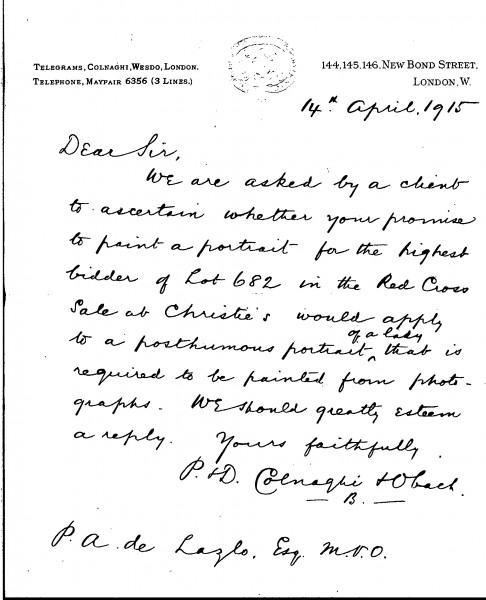 TELEGRAMS, COLNAGHI, WESDO, LONDON.
TELEPHONE, MAYFAIR 6356 (3 LINES.)
144.145.146. NEW BOND STREET,
LONDON.W.
14th April, 1915
Dear Sir,
We are asked by a client
to ascertain whether your promise
to paint a portrait for the highest
bidder of Lot 682 in the Red Cross
Sale at Christie's would apply
of a lady
to a posthumous portrait ‸ that is
required to be painted from photo-
graphs. We should greatly esteem
a reply. Yours faithfully.
P. & D. Colnaghi & Obach.
— B. —
P. A. de Lazlo. Esq. M.V.O.